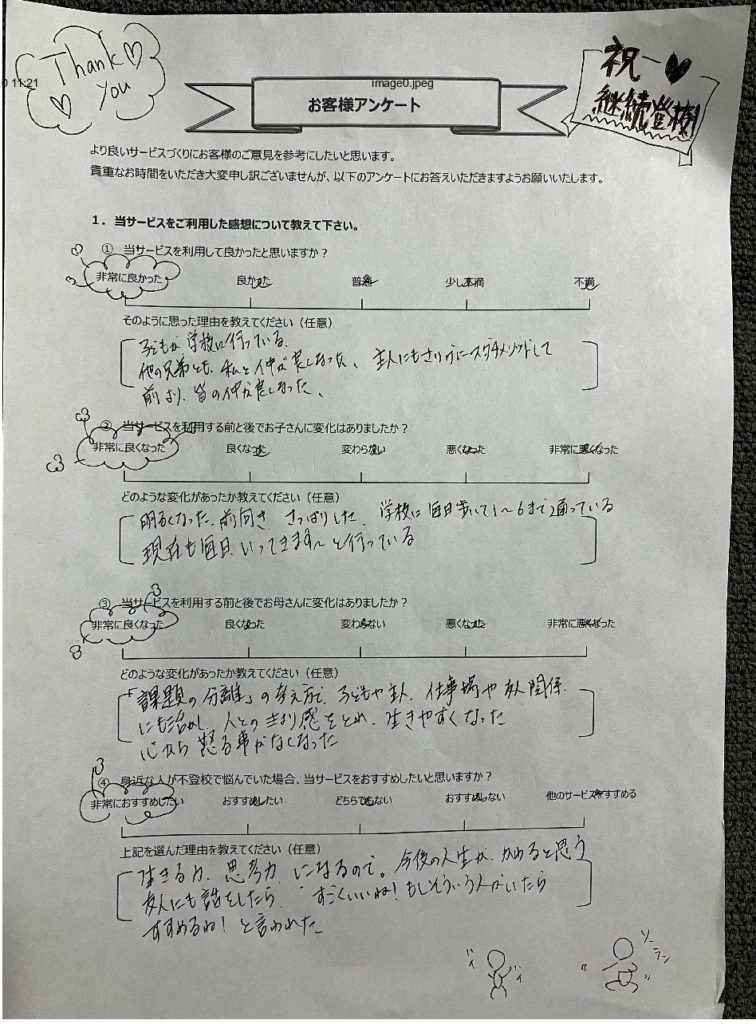 Thank
you
0 11:21
image0.jpeg
祝
継続登校!
お客様アンケート
より良いサービスづくりにお客様のご意見を参考にしたいと思います。
貴重なお時間をいただき大変申し訳ございませんが、以下のアンケートにお答えいただきますようお願いいたします。
1. 当サービスをご利用した感想について教えて下さい。
① 当サービスを利用して良かったと思いますか?
非常に良かった 良かった 普通 少し不満 不満
そのように思った理由を教えてください(任意)
子どもが学校に行っている、
他の兄弟とも、私と仲が良くなった、主人にもさりげにスダチメソッドして
前より、皆の仲が良くなった、
② 当サービスを利用する前と後でお子さんに変化はありましたか?
非常に良くなった 良くなった 変わらない 悪くなった 非常に悪くなった
どのような変化があったか教えてください(任意)
明るくなった、前向き さっぱりした、学校に毎日歩いて1〜6まで通っている
現在も毎日、いってきます〜と行っている
③ 当サービスを利用する前と後でお母さんに変化はありましたか?
非常に良くなった 良くなった 変わらない 悪くなった 非常に悪くなった
どのような変化があったか教えてください(任意)
「課題の分離」の考え方で、子どもや主人、仕事場や友人関係
にも活かし 人とのきより感をとれ、生きやすくなった
心から怒る事がなくなった
④ 身近な人が不登校で悩んでいた場合、当サービスをおすすめしたいと思いますか?
非常におすすめしたい おすすめしたい どちらでもない おすすめしない 他のサービスをすすめる
上記を選んだ理由を教えてください(任意)
生きる力、思考力 になるので。今後の人生が、かわると思う
友人にも話をしたら、すごくいいね!もしそういう人がいたら
すすめるね!と言われた
ソー
ラン